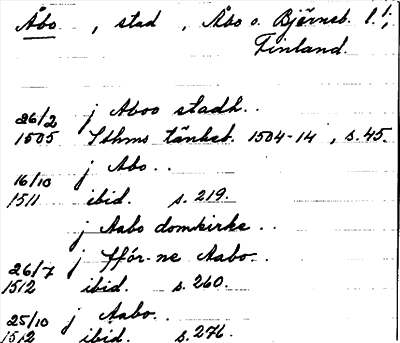 Åbo , stad , Åbo o. Björneb. l.;
Finland.
26/2 j Aboo stadh..
1505 Sthms tänkeb. 1504-14, s.45.
16/10 j Abo..
1511 ibid. s.219.
j Aabo domkirke..
26/7 j ffór-ne Aabo..
1512 ibid. s.260.
25/10 j Aabo..
1512 ibid. s.276.